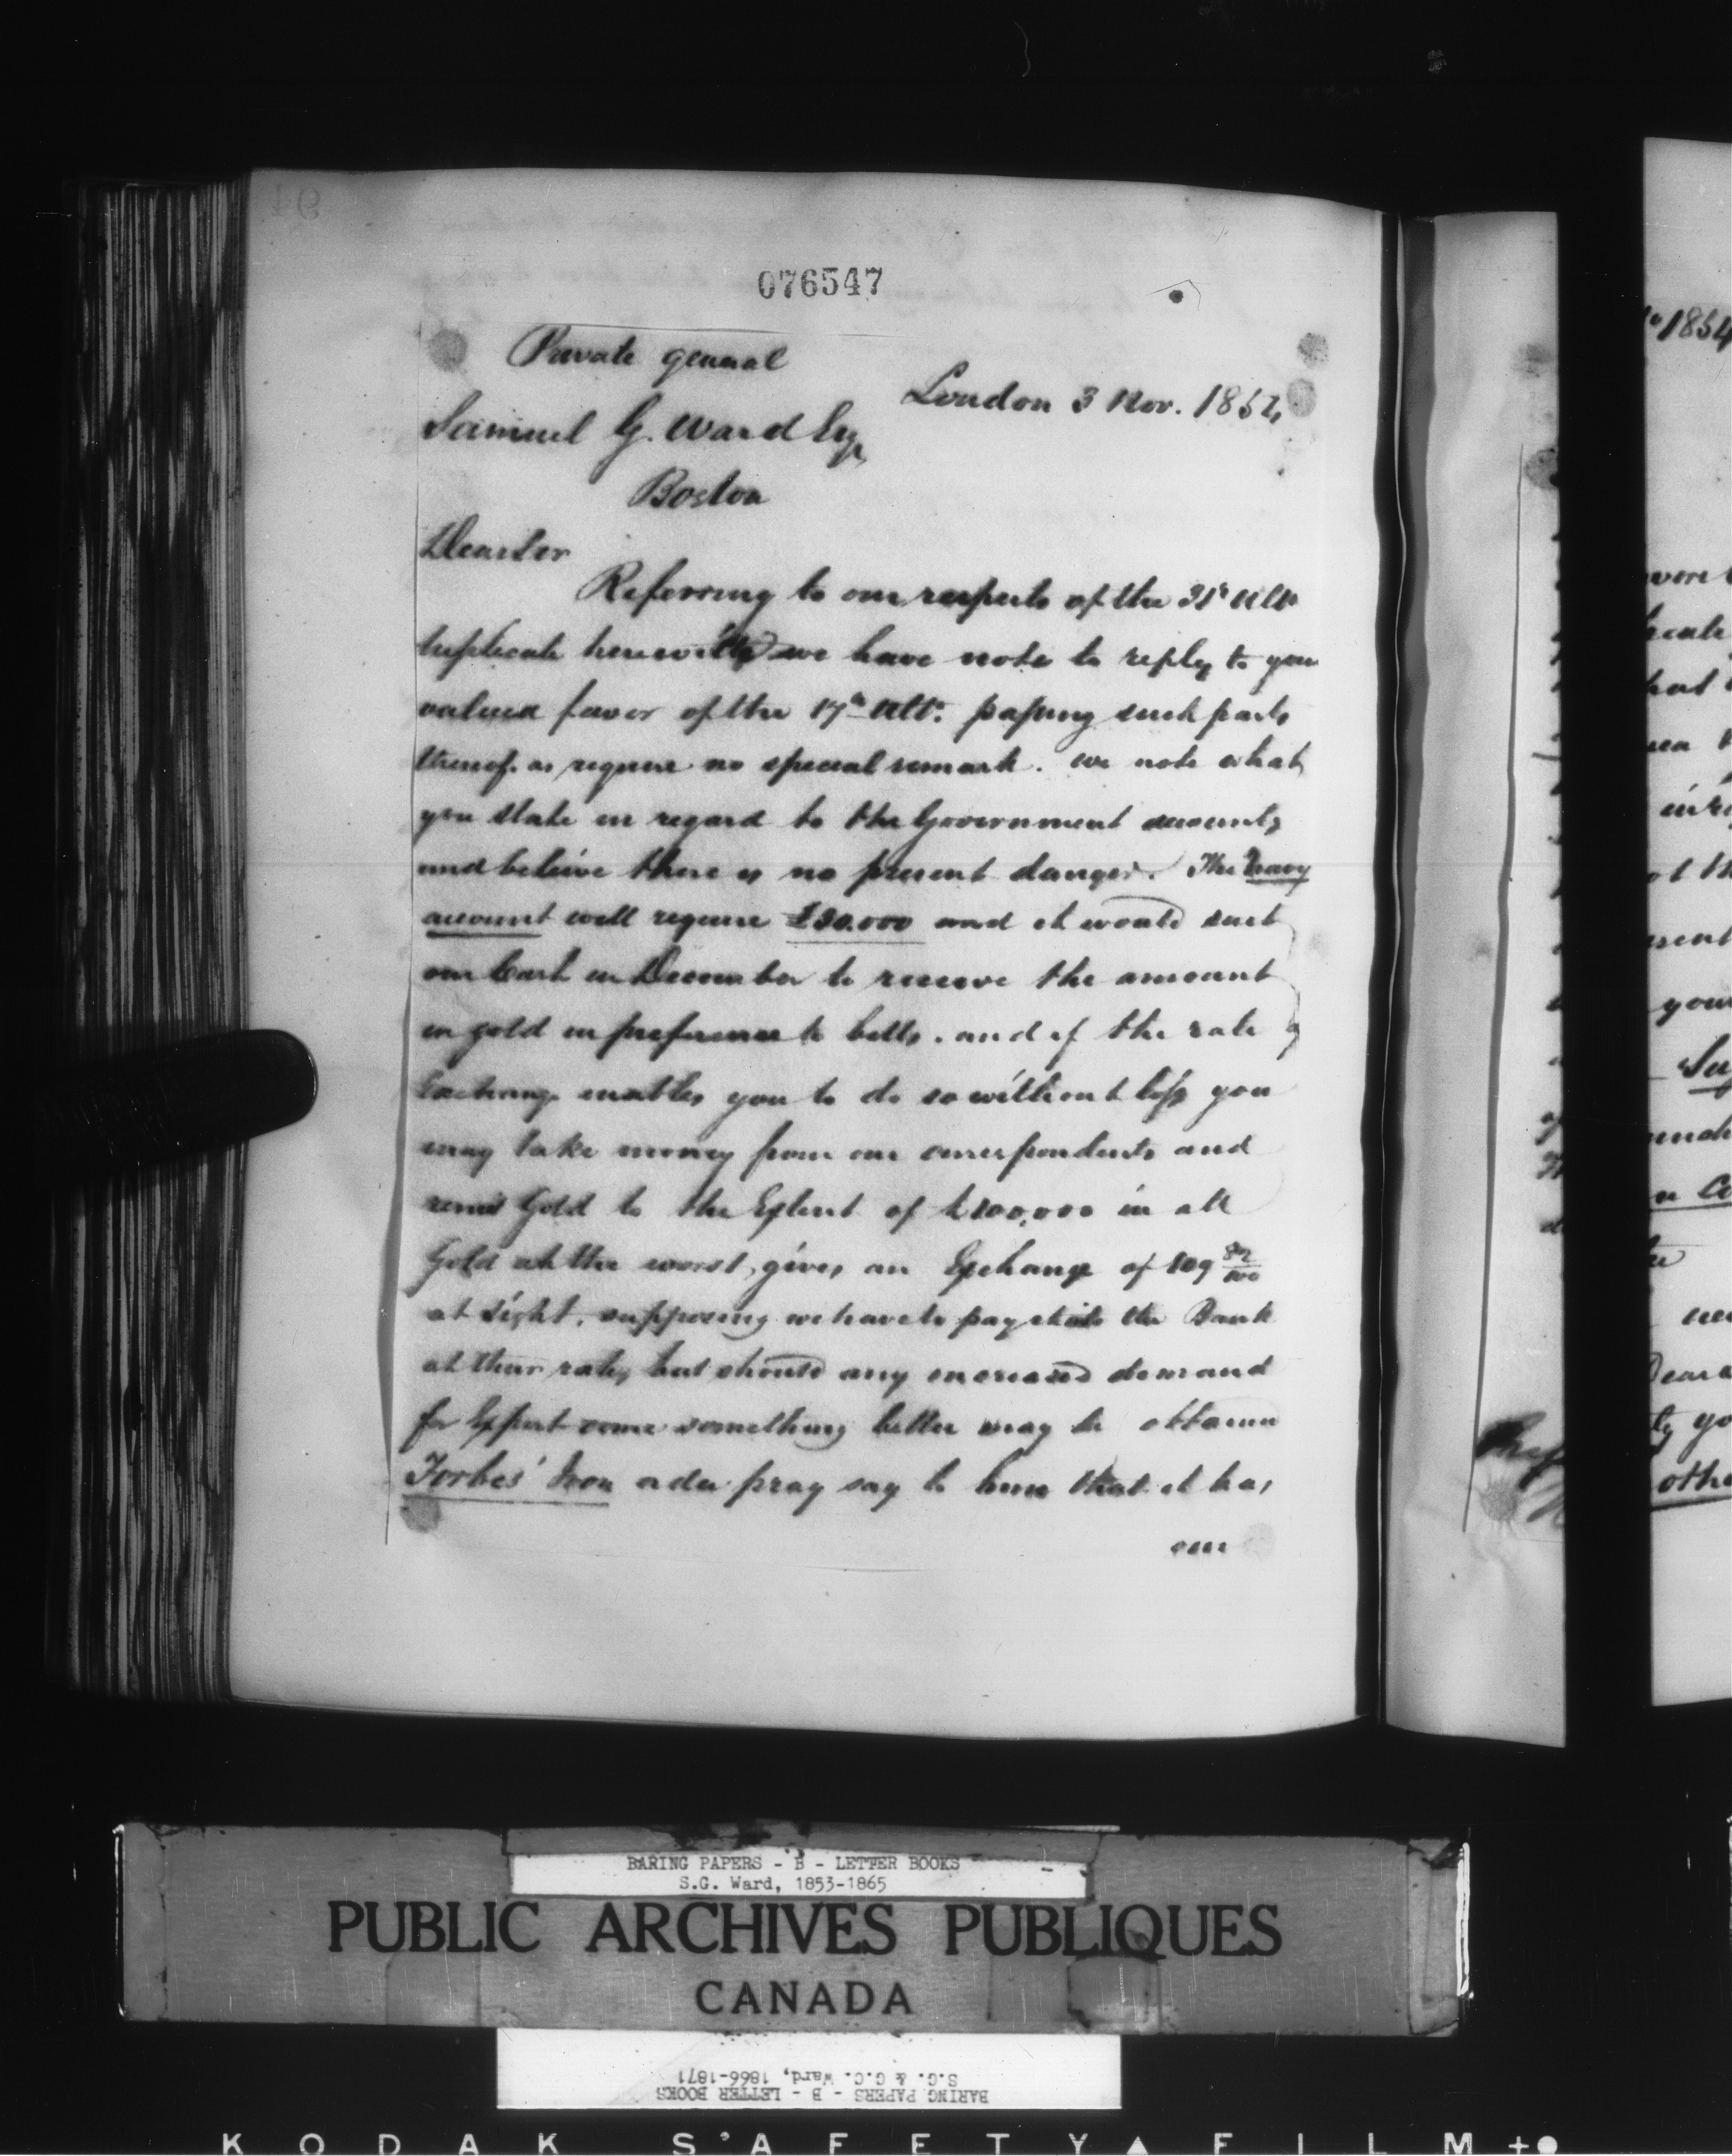 076547
Private general
London 3 Nov. 1854
Samuel G. Ward Esq
Boston
Dear Sir
Referring to our respects of the 31st Ulto
duplicate herewith we have note to reply to your
valued favor of the 17th Ulto. passing such parts
thereof as require no special remark. we note what
you state in regard to the Government accounts
and believe there is no present danger. The Navy
account will require £30.000 and it would suit
our Cash in December to receive the amount
in gold in preference to bills, and if the rate of
Exchange enables you to do so without loss you
may take money from our correspondents and
remit Gold to the Extent of £100,000 in all
Gold at the worst, gives an Exchange of 109
at sight, supposing we have to pay the Bank
at their rates but should any increased demand
for Export come something better may be obtained
Forbes' Iron pray say to him that it has
our
1854
your
BARING PAPERS - B - LETTER BOOKS
S.G. Ward, 1853-1865
PUBLIC ARCHIVES PUBLIQUES
CANADA
BARING PAPERS - B - LETTER BOOKS
S.G. & G.C. Ward, 1866-1871
KODAK S'AFETY FILM